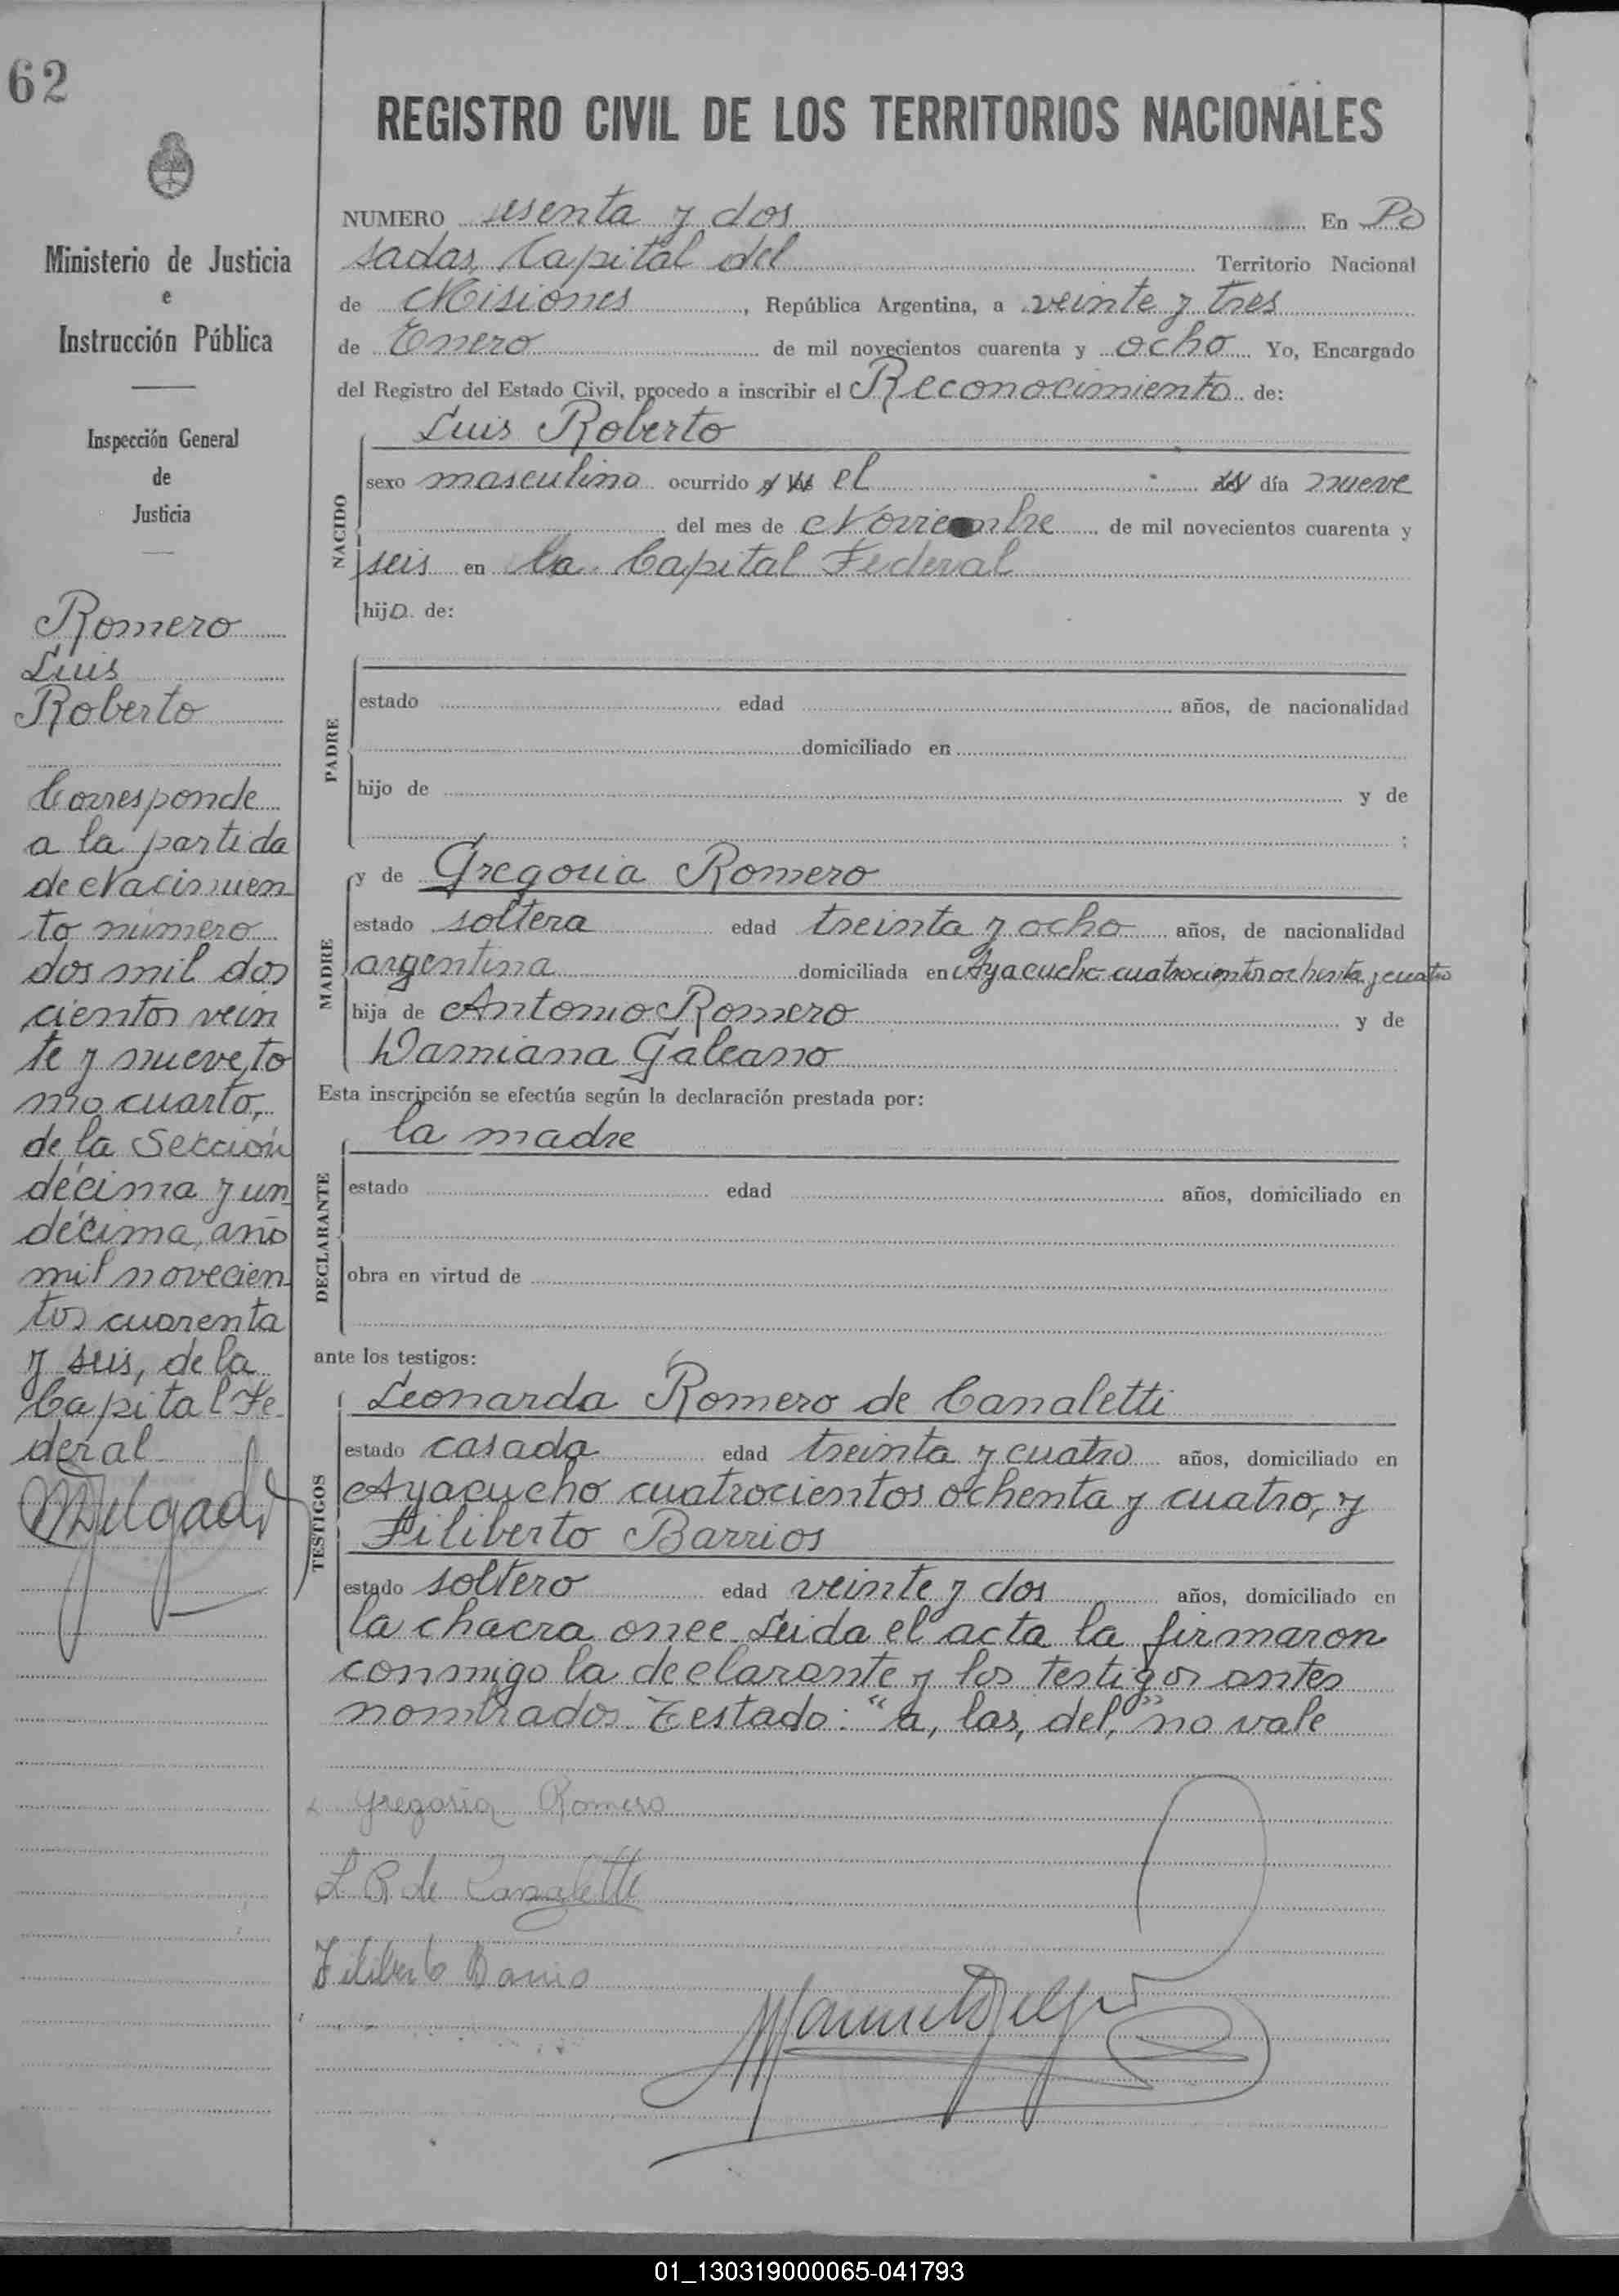 62
Ministerio de Justicia
e
Instrucción Pública
Inspección General
de
Justicia
Romero
Luis
Roberto
Corresponde
a la partida
de Nacimien
to número
dos mil dos
cientos vein
te y nueve, to
mo cuarto,
de la Sección
décima y un
décima, año
mil novecien
tos cuarenta
y seis, de la
Capital Fe
deral
MDelgado
REGISTRO CIVIL DE LOS TERRITORIOS NACIONALES
NUMERO sesenta y dos En Po
sadas, Capital del Territorio Nacional
de Misiones, República Argentina, a veinte y tres
de Enero de mil novecientos cuarenta y ocho Yo, Encargado
del Registro del Estado Civil, procedo a inscribir el Reconocimiento de:
Luis Roberto
NACIDO
sexo masculino ocurrido a las el del día nueve
del mes de Noviembre de mil novecientos cuarenta y
seis en la Capital Federal
hijo de:
PADRE
estado edad años, de nacionalidad
domiciliado en
hijo de y de
;
MADRE
y de Gregoria Romero
estado soltera edad treinta y ocho años, de nacionalidad
argentina domiciliada en Ayacucho cuatrocientos ochenta y cuatro
hija de Antonio Romero y de
Damiana Galeano
Esta inscripción se efectúa según la declaración prestada por:
la madre
DECLARANTE
estado edad años, domiciliado en
obra en virtud de
ante los testigos:
TESTIGOS
Leonarda Romero de Canaletti
estado casada edad treinta y cuatro años, domiciliado en
Ayacucho cuatrocientos ochenta y cuatro, y
Filiberto Barrios
estado soltero edad veinte y dos años, domiciliado en
la chacra once. Leida el acta la firmaron
conmigo la declarante y los testigos antes
nombrados. Testado: "a, las, del," no vale
Gregoria Romero
L R. de Canaletti
Filiberto Barrios
Manuel Delgado
01_130319000065-041793